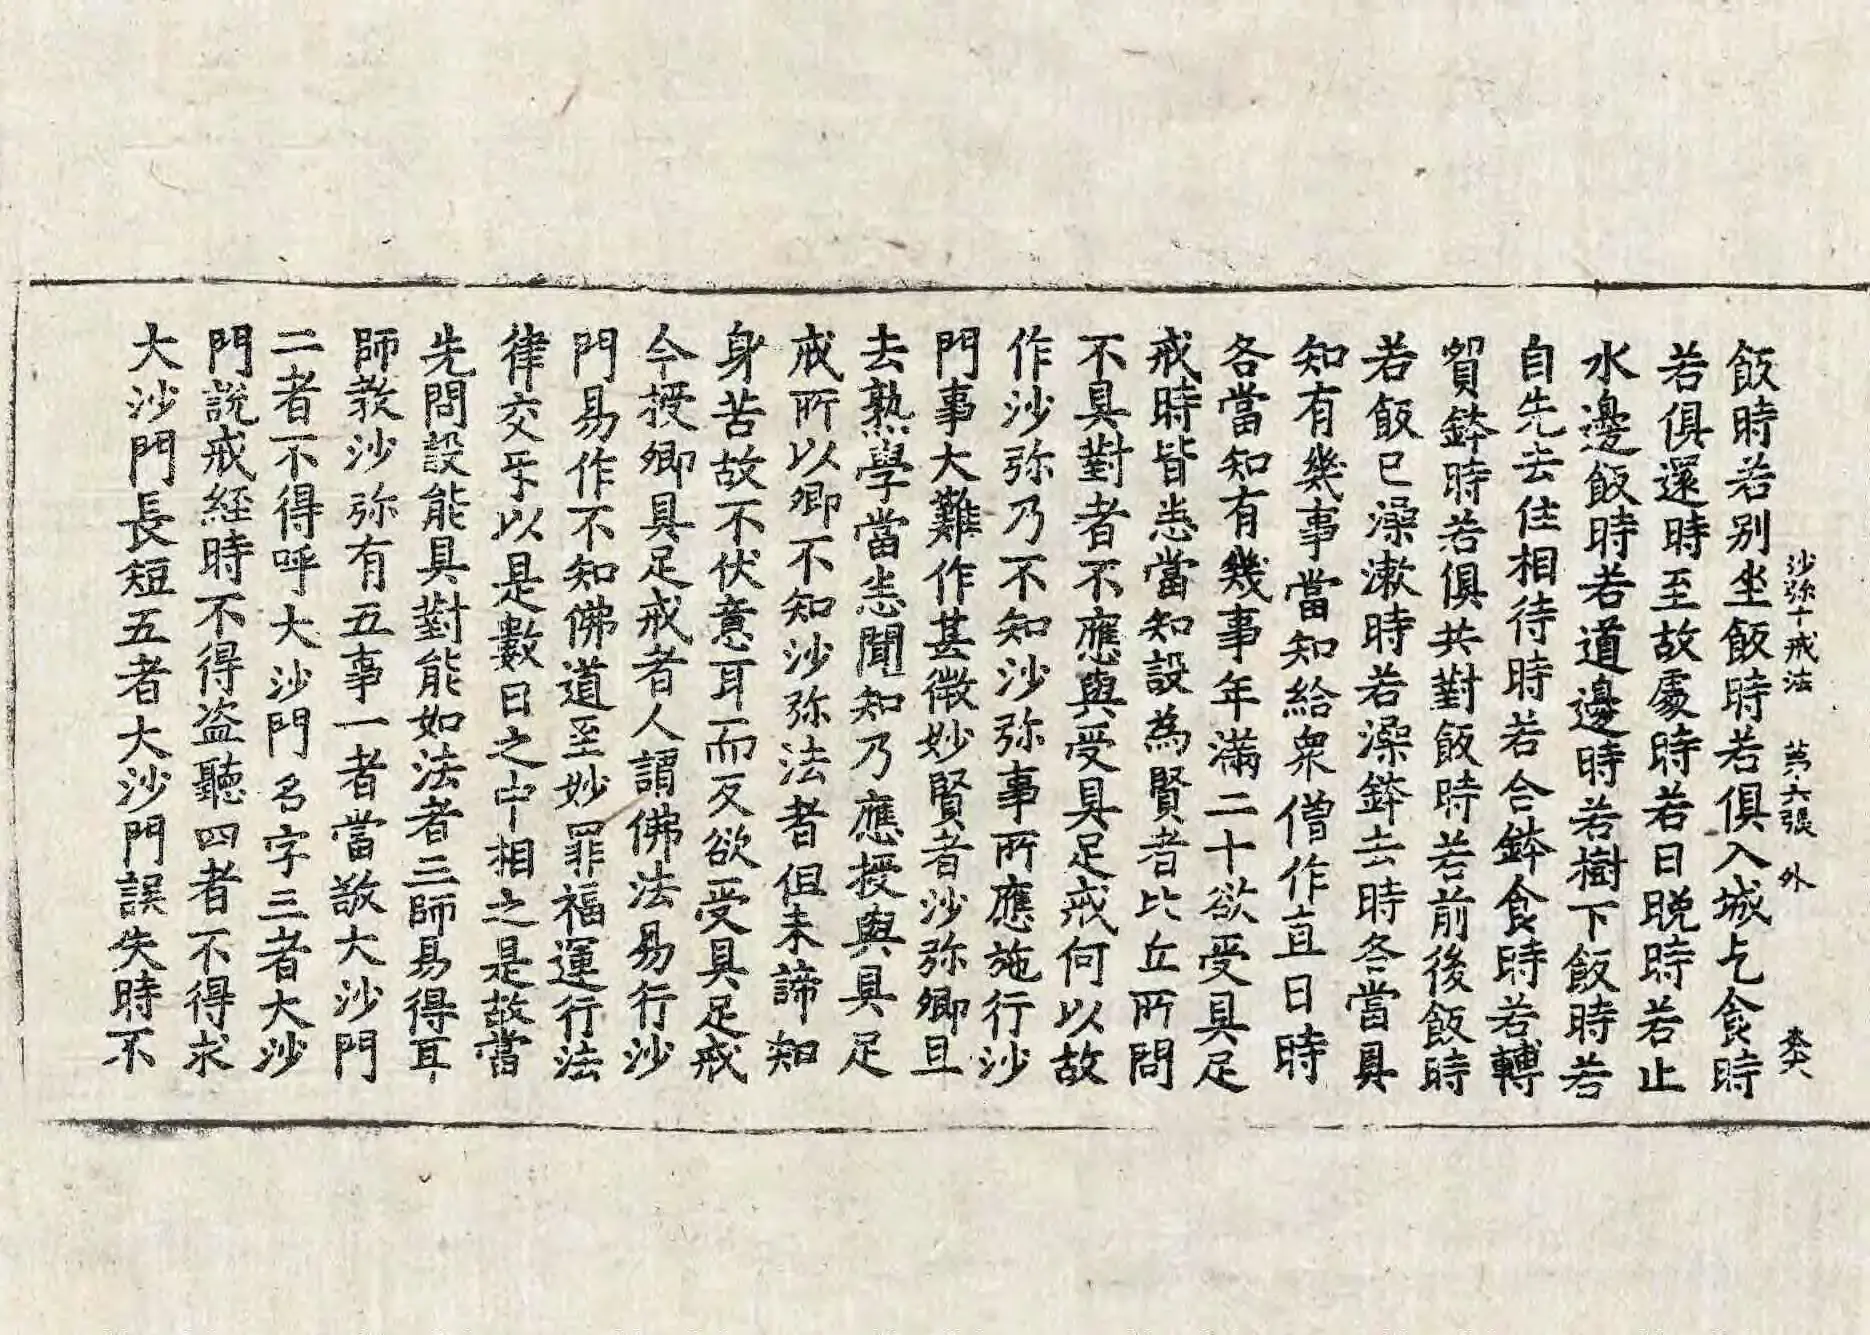 沙弥十戒法 苐六張 外
飯時若别坐飯時若俱入城乞食時
若俱還時至故處時若日晚時若止
水邊飯時若道邊時若樹下飯時若
自先去住相待時若合鉢食時若轉
貿鉢時若俱共對飯時若前後飯時
若飯已澡漱時若澡鉢去時各當具
知有幾事當知給衆僧作直日時
各當知有幾事年滿二十欲受具足
戒時皆悉當知設為賢者比丘所問
不具對者不應與受具足戒何以故
作沙弥乃不知沙弥事所應施行沙
門事大難作甚微妙賢者沙弥卿且
去熟學當悉聞知乃應授與具足
戒所以卿不知沙弥法者但未諦知
身苦故不伏意耳而反欲受具足戒
今授卿具足戒者人謂佛法易行沙
門易作不知佛道至妙罪福運行法
律交牙以是數日之中相之是故當
先問設能具對能如法者三師易得耳
師教沙弥有五事一者當敬大沙門
二者不得呼大沙門名字三者大沙
門說戒經時不得盗聽四者不得求
大沙門長短五者大沙門誤失時不